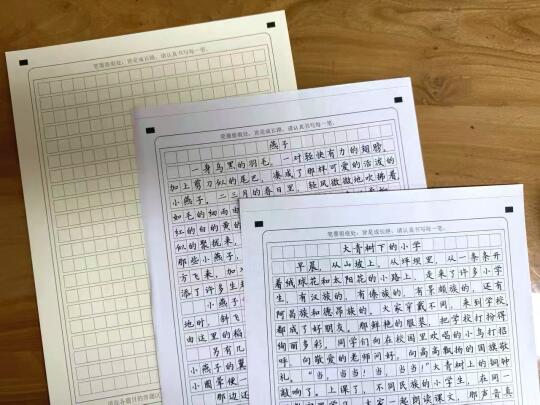 笔墨痕痕处，皆是成长路，请认真书写每一笔。
笔墨痕痕处，皆是成长路，请认真书写每一笔。
燕子
一身乌黑的羽毛，一对轻快有力的翅膀，
加上剪刀似的尾巴，凑成了那样可爱的活泼的
小燕子。二三月的春日里，轻风微微地吹拂着，
如毛的细雨由
红的白的黄的
似的聚拢来，
那些小燕子，
方飞来，加入
添了许多生
小燕子
地叶，斜飞
由这里的稻
另有几
小燕子的翼
小圆晕便一
那边还
笔墨痕痕处，皆是成长路，请认真书写每一笔。
大青树下的小学
早晨，从山坡上，从坪坝里，从一条条开
着绒球花和太阳花的小路上，走来了许多小学
生，有汉族的，有傣族的，有景颇族的，还有
阿昌族和德昂族的。大家穿戴不同，来到学校，
都成了好朋友。那鲜艳的服装，把学校打扮得
绚丽多彩。同学们向在校园里欢唱的小鸟打招
呼，向敬爱的老师问好，向高高飘扬的国旗敬
礼。“当，当当！当当！”大青树上的铜钟
敲响了。上课了，不同民族的小学生，在同一
间教室里学习。大家一起朗读课文，那声音真